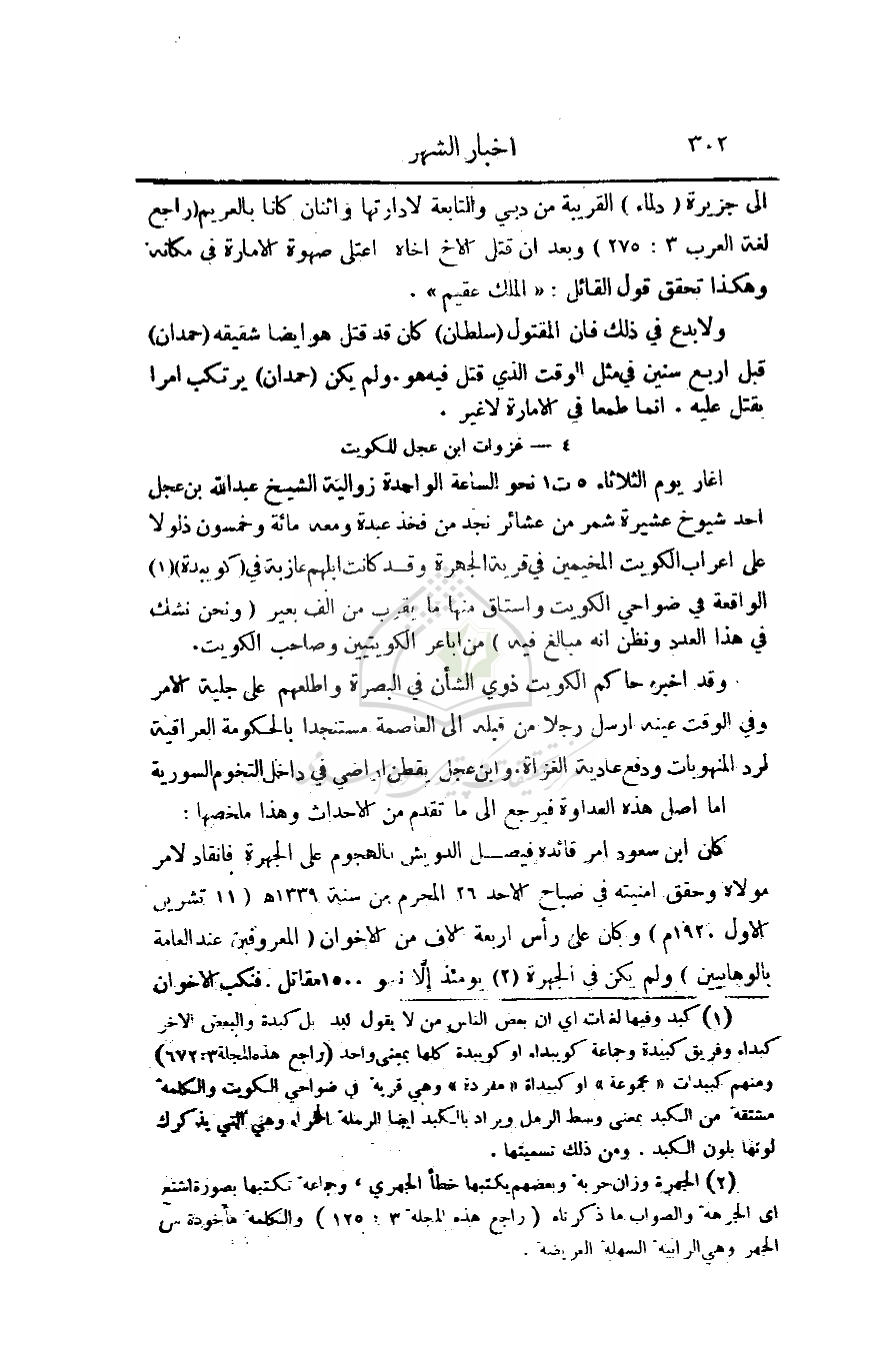 ٣٠٢ اخبار الشهر
الى جزيرة ( دلماء ) القريبة من دبي والتابعة لادارتها واثنان كانا بالعريم(راجع
لغة العرب ٣ : ٢٧٥ ) وبعد ان قتل الاخ اخاه اعتلى صهوة الامارة في مكانه
وهكذا تحقق قول القائل : « الملك عقيم » .
ولابدع في ذلك فان المقتول (سلطان) كان قد قتل هو ايضا شقيقه (حمدان)
قبل اربع سنين في مثل الوقت الذي قتل فيه هو . ولم يكن (حمدان) يرتكب امرا
يقتل عليه . انما طمعا في الامارة لاغير .
٤ — غزوات ابن عجل للكويت
اغار يوم الثلاثاء ٥ ت١ نحو الساعة الواحدة زوالية الشيخ عبدالله بن عجل
احد شيوخ عشيرة شمر من عشائر نجد من فخذ عبدة ومعه مائة وخمسون ذلولا
على اعراب الكويت المخيمين في قرية الجهرة وقد كانت ابلهم عازبة في (كوبيدة)(١)
الواقعة في ضواحي الكويت واستاق منها ما يقرب من الف بعير ( ونحن نشك
في هذا العدد ونظن انه مبالغ فيه ) من اباعر الكويتيين وصاحب الكويت.
وقد اخبر حاكم الكويت ذوي الشأن في البصرة واطلعهم على جلية الامر
وفي الوقت عينه ارسل رجلا من قبله الى العاصمة مستنجدا بالحكومة العراقية
لرد المنهوبات ودفع عادية الغزاة. وابن عجل يقطن اراضي في داخل التخوم السورية
اما اصل هذه العداوة فيرجع الى ما تقدم من الاحداث وهذا ملخصها :
كان ابن سعود امر قائده فيصل الدويش بالهجوم على الجهرة فانقاد لامر
مولاه وحقق امنيته في صباح الاحد ٢٦ المحرم من سنة ١٣٣٩ه ( ١١ تشرين
الاول ١٩٢٠م ) وكان على رأس اربعة الاف من الاخوان ( المعروفين عند العامة
بالوهابيين ) ولم يكن في الجهرة (٢) يومئذ إلّا نحو ١٥٠٠ مقاتل . فنكب الاخوان
(١) كبد وفيها لغات اي ان بعض الناس من لا يقول كبد بل كبدة والبعض الاخر
كبداء وفريق كبيدة وجماعة كوبيداء او كوبيدة كلها بمعنى واحد (راجع هذه المجلة ٣ : ٦٧٢)
ومنهم كبيدات « مجموعة » او كبيداة « مفردة » وهي قرية في ضواحي الكويت والكلمة
مشتقة من الكبد بمعنى وسط الرمل ويراد بالكبد ايضا الرملة الحمراء وهي التي يذكرك
لونها بلون الكبد . ومن ذلك تسميتها .
(٢) الجهرة وزان حربة وبعضهم يكتبها خطأ الجهري ، وجماعة تكتبها بصورة اشنع
اى الجرهة والصواب ما ذكرناه ( راجع هذه المجلة ٣ : ١٢٥ ) والكلمة مأخوذة من
الجهر وهي الرابية السهلة العريضة .